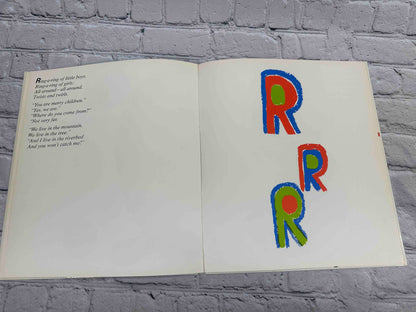 Ring-a-ring of little boys,
Ring-a-ring of girls;
All around—all around,
Twists and twirls.
"You are merry children."
"Yes, we are."
"Where do you come from?"
"Not very far.
"We live in the mountain,
We live in the tree,
"And I live in the riverbed
And you won't catch me!"
R
R
R